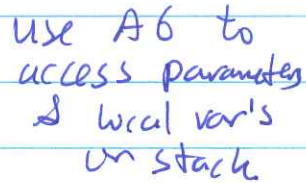 use A6 to
access parameters
& local var's
on stack